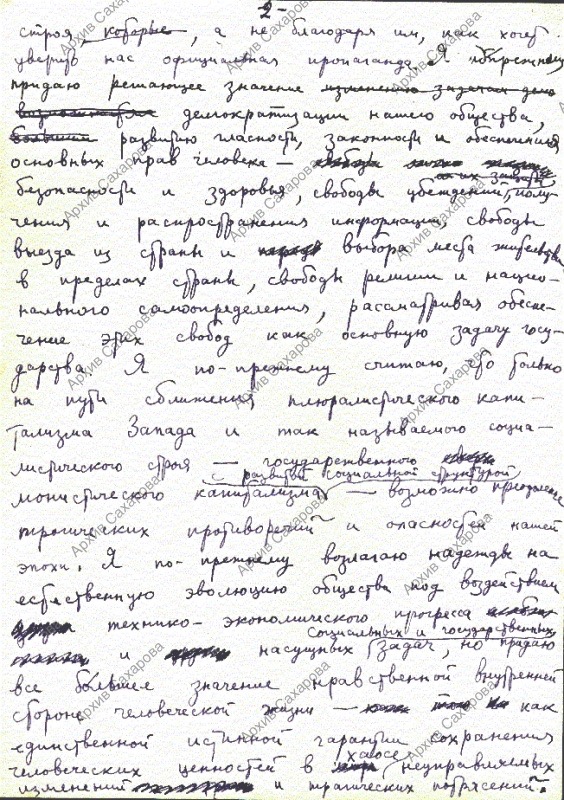 - 2 -
строя, которые, а не благодаря им, как хочет
уверить нас официальная пропаганда. Я по-прежнему
придаю решающее значение изменению задачам дела
демократизации нашего общества,
большие развитию гласности, законности и обеспечения
основных прав человека —
безопасности и здоровья, свободы убеждений, полу-
чения и распространения информации, свободы
выезда из страны и выбора места жительства
в пределах страны, свободы религии и нацио-
нального самоопределения, рассматривая обеспе-
чение этих свобод как основную задачу госу-
дарства. Я по-прежнему считаю, что только
на пути сближения плюралистического капи-
тализма Запада и так называемого социа-
листического строя — государственного
с развитой социальной структурой
монистического капитализма — возможно преодоление
трагических противоречий и опасностей нашей
эпохи. Я по-прежнему возлагаю надежды на
естественную эволюцию общества под воздействием
технико-экономического прогресса
социальных и государственных
и насущных задач, но придаю
все большее значение нравственной внутренней
стороне человеческой жизни — как
единственной истинной гарантии сохранения
хаосе
человеческих ценностей в неуправляемых
изменений и трагических потрясений.
Архив Сахарова